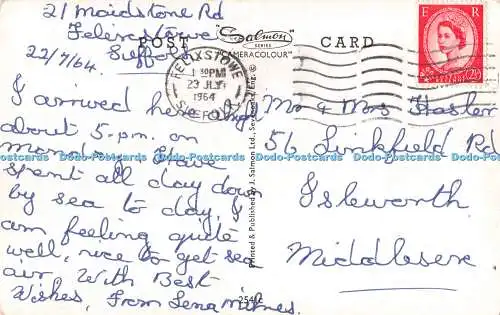 21 Maidstone Rd
Felixstowe
Suffolk
22/7/64.
I arrived here
about 5-p.m. on
Monday. I have
spent all day down
by sea to day, I
am feeling quite
well, nice to get sea
air, With Best
Wishes, From Lena
POST CARD
Salmon
SERIES
"CAMERACOLOUR"
FELIXSTOWE
1 30PM
23 JLY
1964
SUFFOLK
Printed & Published by J. Salmon Ltd., Sevenoaks, Eng. ©
E R
2½D
Mr & Mrs Hasler
56 Linkfield Rd
Isleworth
Middlesex
Dodo-Postcards Dodo-Postcards Dodo-Postcards Dodo-Postcards Dodo-Postcards Dodo-Postcards